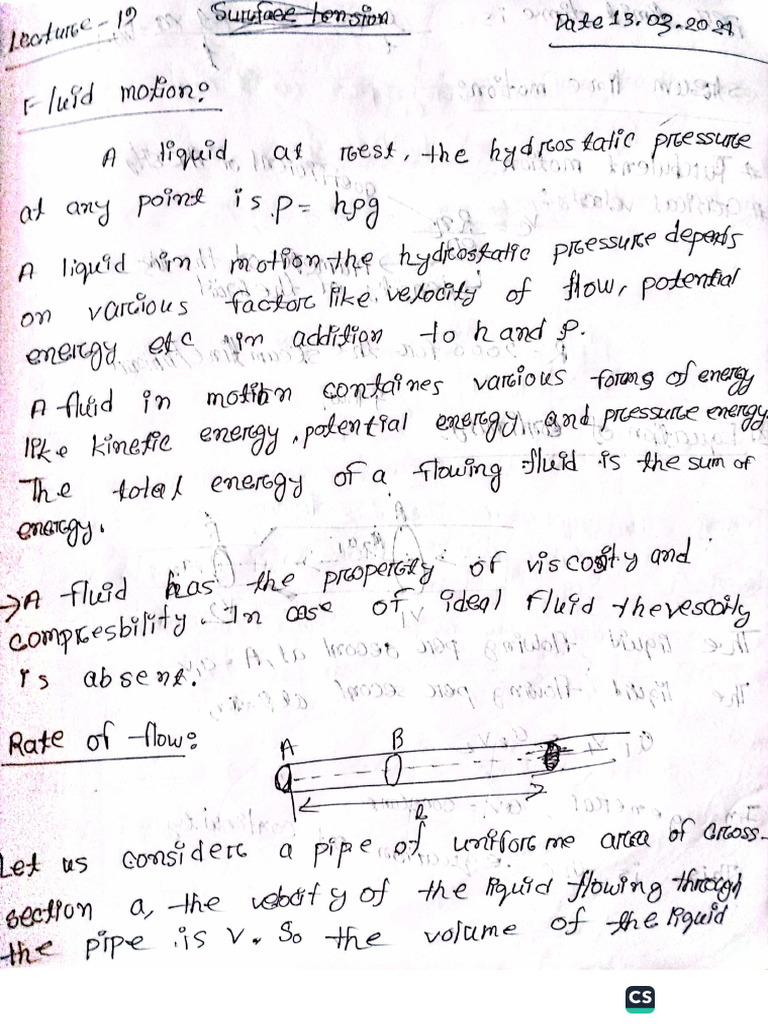 Lecture - 19 Surface tension Date 13.03.2021
Fluid motion:
A liquid at rest, the hydrostatic pressure
at any point is P = hρg
A liquid in motion the hydrostatic pressure depends
on various factor like velocity of flow, potential
energy etc in addition to h and ρ.
A fluid in motion containes various forms of energy
like kinetic energy, potential energy and pressure energy.
The total energy of a flowing fluid is the sum of
energy.
→ A fluid has the property of viscosity and
compresbility. In case of ideal fluid the vescoity
is absent.
Rate of flow:
A B
l
Let us consider a pipe of uniforme area of cross-
section a, the velocity of the liquid flowing through
the pipe is v. So the volume of the liquid
CS